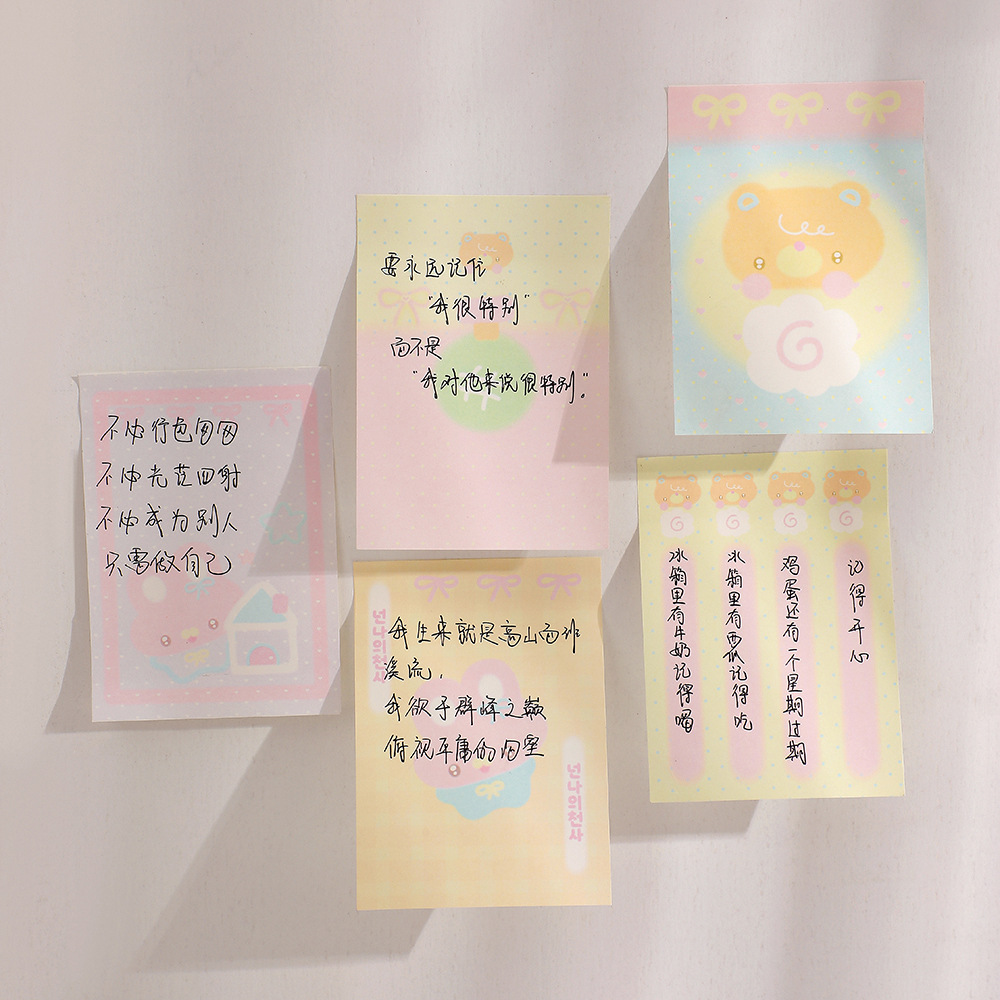 不必行色匆匆
不必光芒四射
不必成为别人
只需做自己
要永远记住
"我很特别"
而不是
"我对他来说很特别。"
넌 나의 천사
我生来就是高山而非
溪流，
我欲于群峰之巅
俯视平庸的沟壑
넌 나의 천사
冰箱里有牛奶记得喝
冰箱里有西瓜记得吃
鸡蛋还有一个星期过期
记得开心